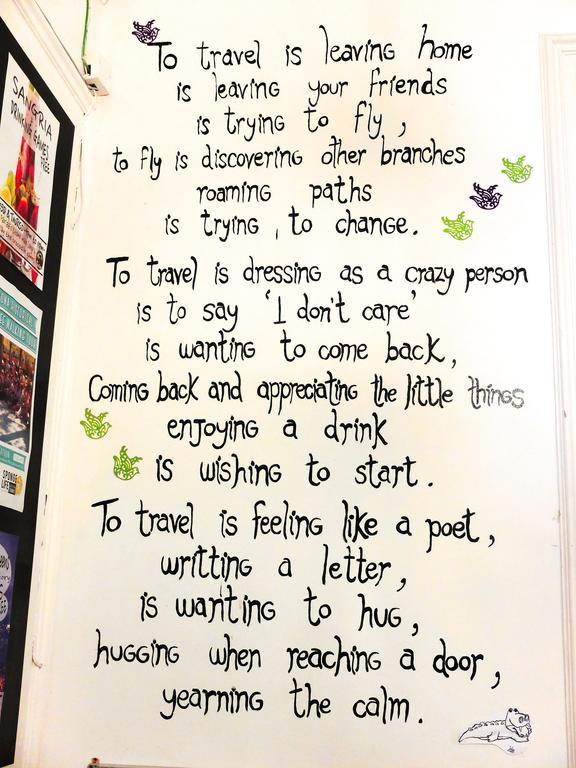 To travel is leaving home
is leaving your friends
is trying to fly,
to fly is discovering other branches
roaming paths
is trying, to change.
To travel is dressing as a crazy person
is to say 'I don't care'
is wanting to come back,
Coming back and appreciating the little things
enjoying a drink
is wishing to start.
To travel is feeling like a poet,
writting a letter,
is wanting to hug,
hugging when reaching a door,
yearning the calm.
SANGRIA
DRINKING GAMES
FREE